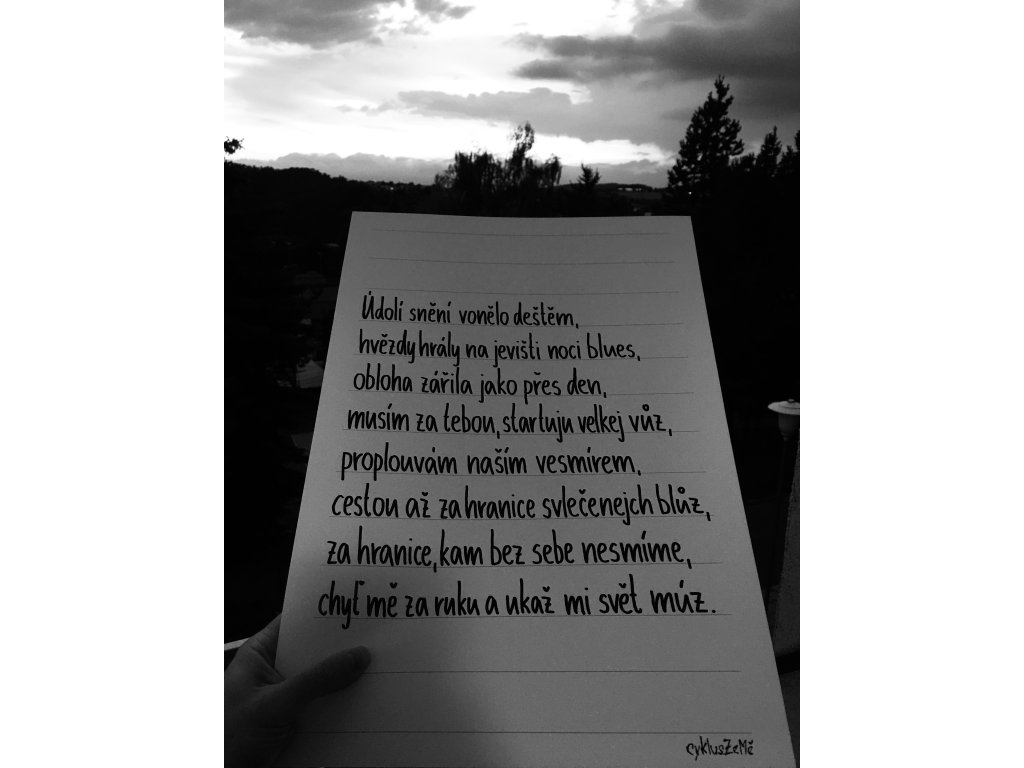 Údolí snění vonělo deštěm,
hvězdy hrály na jevišti noci blues,
obloha zářila jako přes den,
musím za tebou, startuju velkej vůz,
proplouvám naším vesmírem,
cestou až za hranice svlečenejch blůz,
za hranice, kam bez sebe nesmíme,
chyť mě za ruku a ukaž mi svět múz.
cyklusZeMě